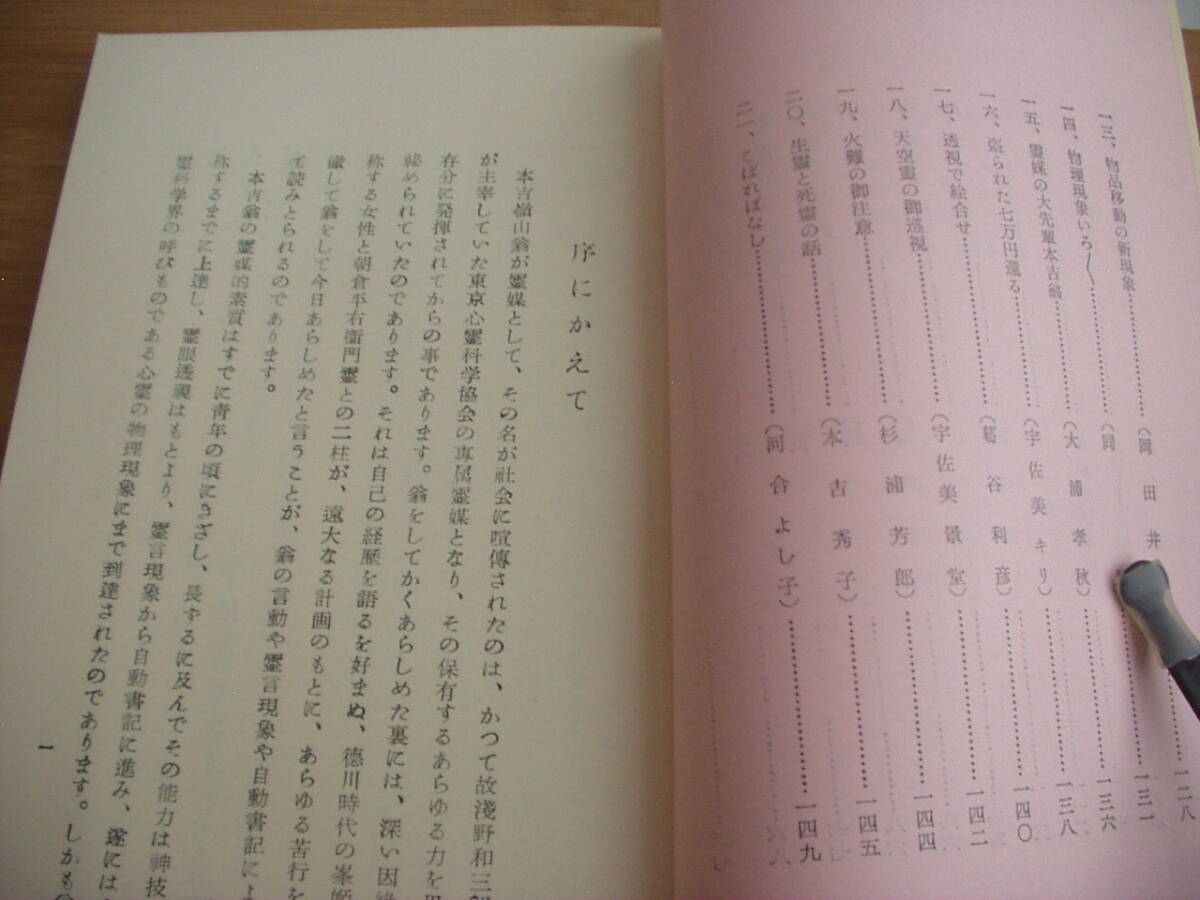 一三、物品移動の新現象……………(岡田井
一二八
一四、物理現象いろ〳〵……………(同
一三一
一五、靈媒の大先輩本吉翁……………(大浦孝秋)……………一三六
一六、盗られた七万円還る……………(宇佐美キリ)……………一三八
一七、透視で絵合せ……………(葛谷利彦)……………一四〇
一八、天空霊の御巡視……………(宇佐美景堂)……………一四二
一九、火難の御注意……………(杉浦芳郎)……………一四四
二〇、生霊と死霊の話……………(本吉秀子)……………一四五
二一、こばればなし……………(河合よし子)……………一四九
序にかえて
本吉嶺山翁が霊媒として、その名が社会に喧傳されたのは、かつて故淺野和三郎
が主宰していた東京心霊科学協会の専属霊媒となり、その保有するあらゆる力を思
存分に発揮されてからの事であります。翁をしてかくあらしめた裏には、深い因縁
秘められていたのであります。それは自己の経歴を語るを好まぬ、德川時代の峯姫
称する女性と朝倉平右衞門霊との二柱が、遠大なる計画のもとに、あらゆる苦行を
徹して翁をして今日あらしめたと言うことが、翁の言動や霊言現象や自動書記によ
て読みとられるのであります。
本吉翁の霊媒的素質はすでに青年の頃にきざし、長ずるに及んでその能力は神技
称するまでに上達し、霊眼透視はもとより、霊言現象から自動書記に進み、遂には
霊科学界の呼びものである心霊の物理現象にまで到達されたのであります。しかも
一